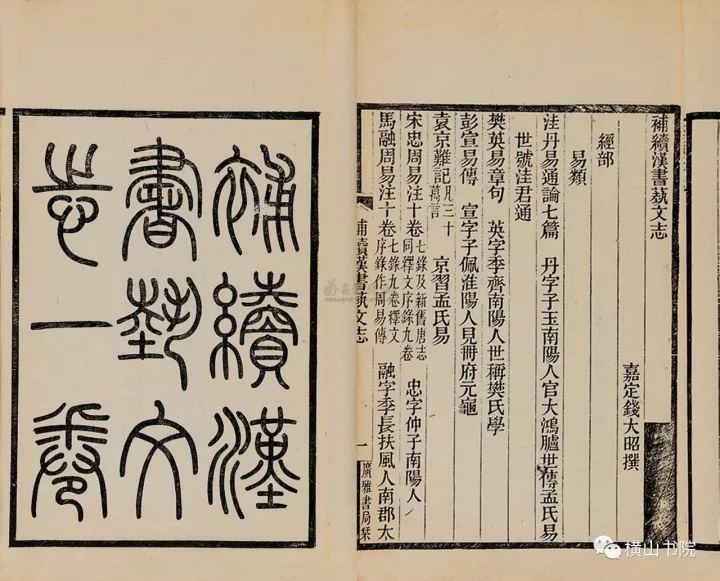 補續漢
書埶文
志一卷
補續漢書蓺文志
嘉定錢大昭撰
經部
易類
洼丹易通論七篇 丹字子玉南陽人官大鴻臚世傳孟氏易
世號洼君通
樊英易章句 英字季齊南陽人世稱樊氏學
彭宣易傳 宣字子佩淮陽人見冊府元龜
袁京難記凡三十萬言 京習孟氏易
宋忠周易注十卷七錄及新舊唐志同釋文序錄九卷 忠字仲子南陽人
馬融周易注十卷七錄九卷釋文序錄作周易傳 融字季長扶風人南郡太
補續漢書蓺文志 一 廣雅書局栞
横山书院